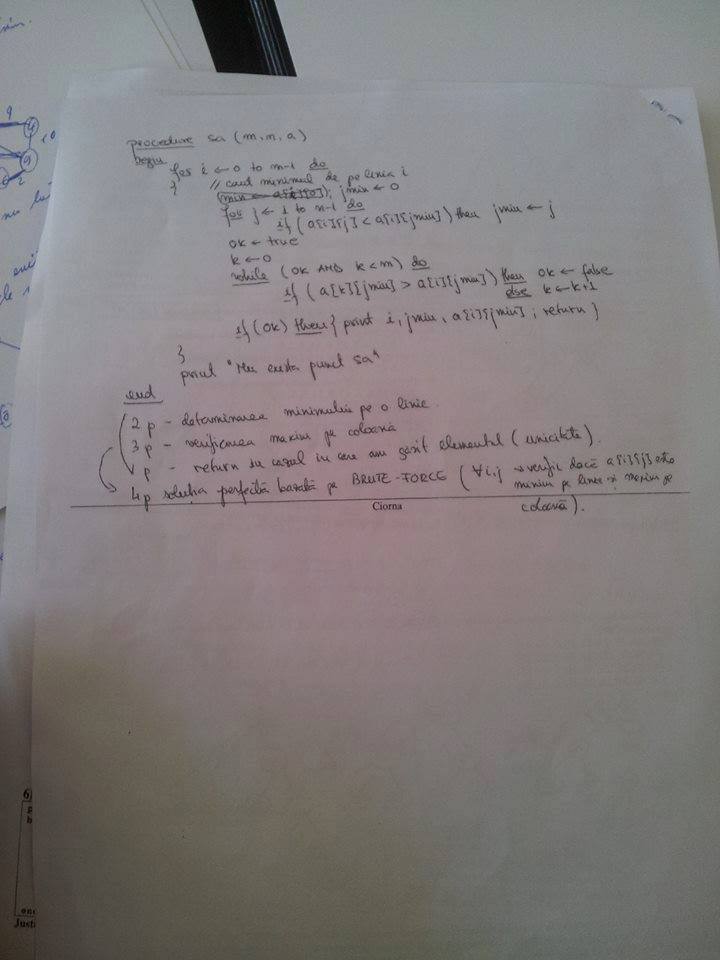 procedure sa (m, n, a)
begin
for i ← 0 to m-1 do
{ // caut minimul de pe linia i
min ← a[i][0]; jmin ← 0
for j ← 1 to n-1 do
if (a[i][j] < a[i][jmin]) then jmin ← j
ok ← true
k ← 0
while (ok AND k<m) do
if (a[k][jmin] > a[i][jmin]) then ok ← false
else k ← k+1
if (ok) then { print i, jmin, a[i][jmin]; return }
}
print "Nu exista punct sa"
end
2p - determinarea minimului pe o linie.
3p - verificarea maxim pe coloană
1p - return în cazul in care am găsit elementul (unicitate).
4p soluția perfectă bazată pe BRUTE-FORCE (∀i,j → verific dacă a[i][j] este
minim pe linie și maxim pe
coloană).
Ciorna
6)
Just